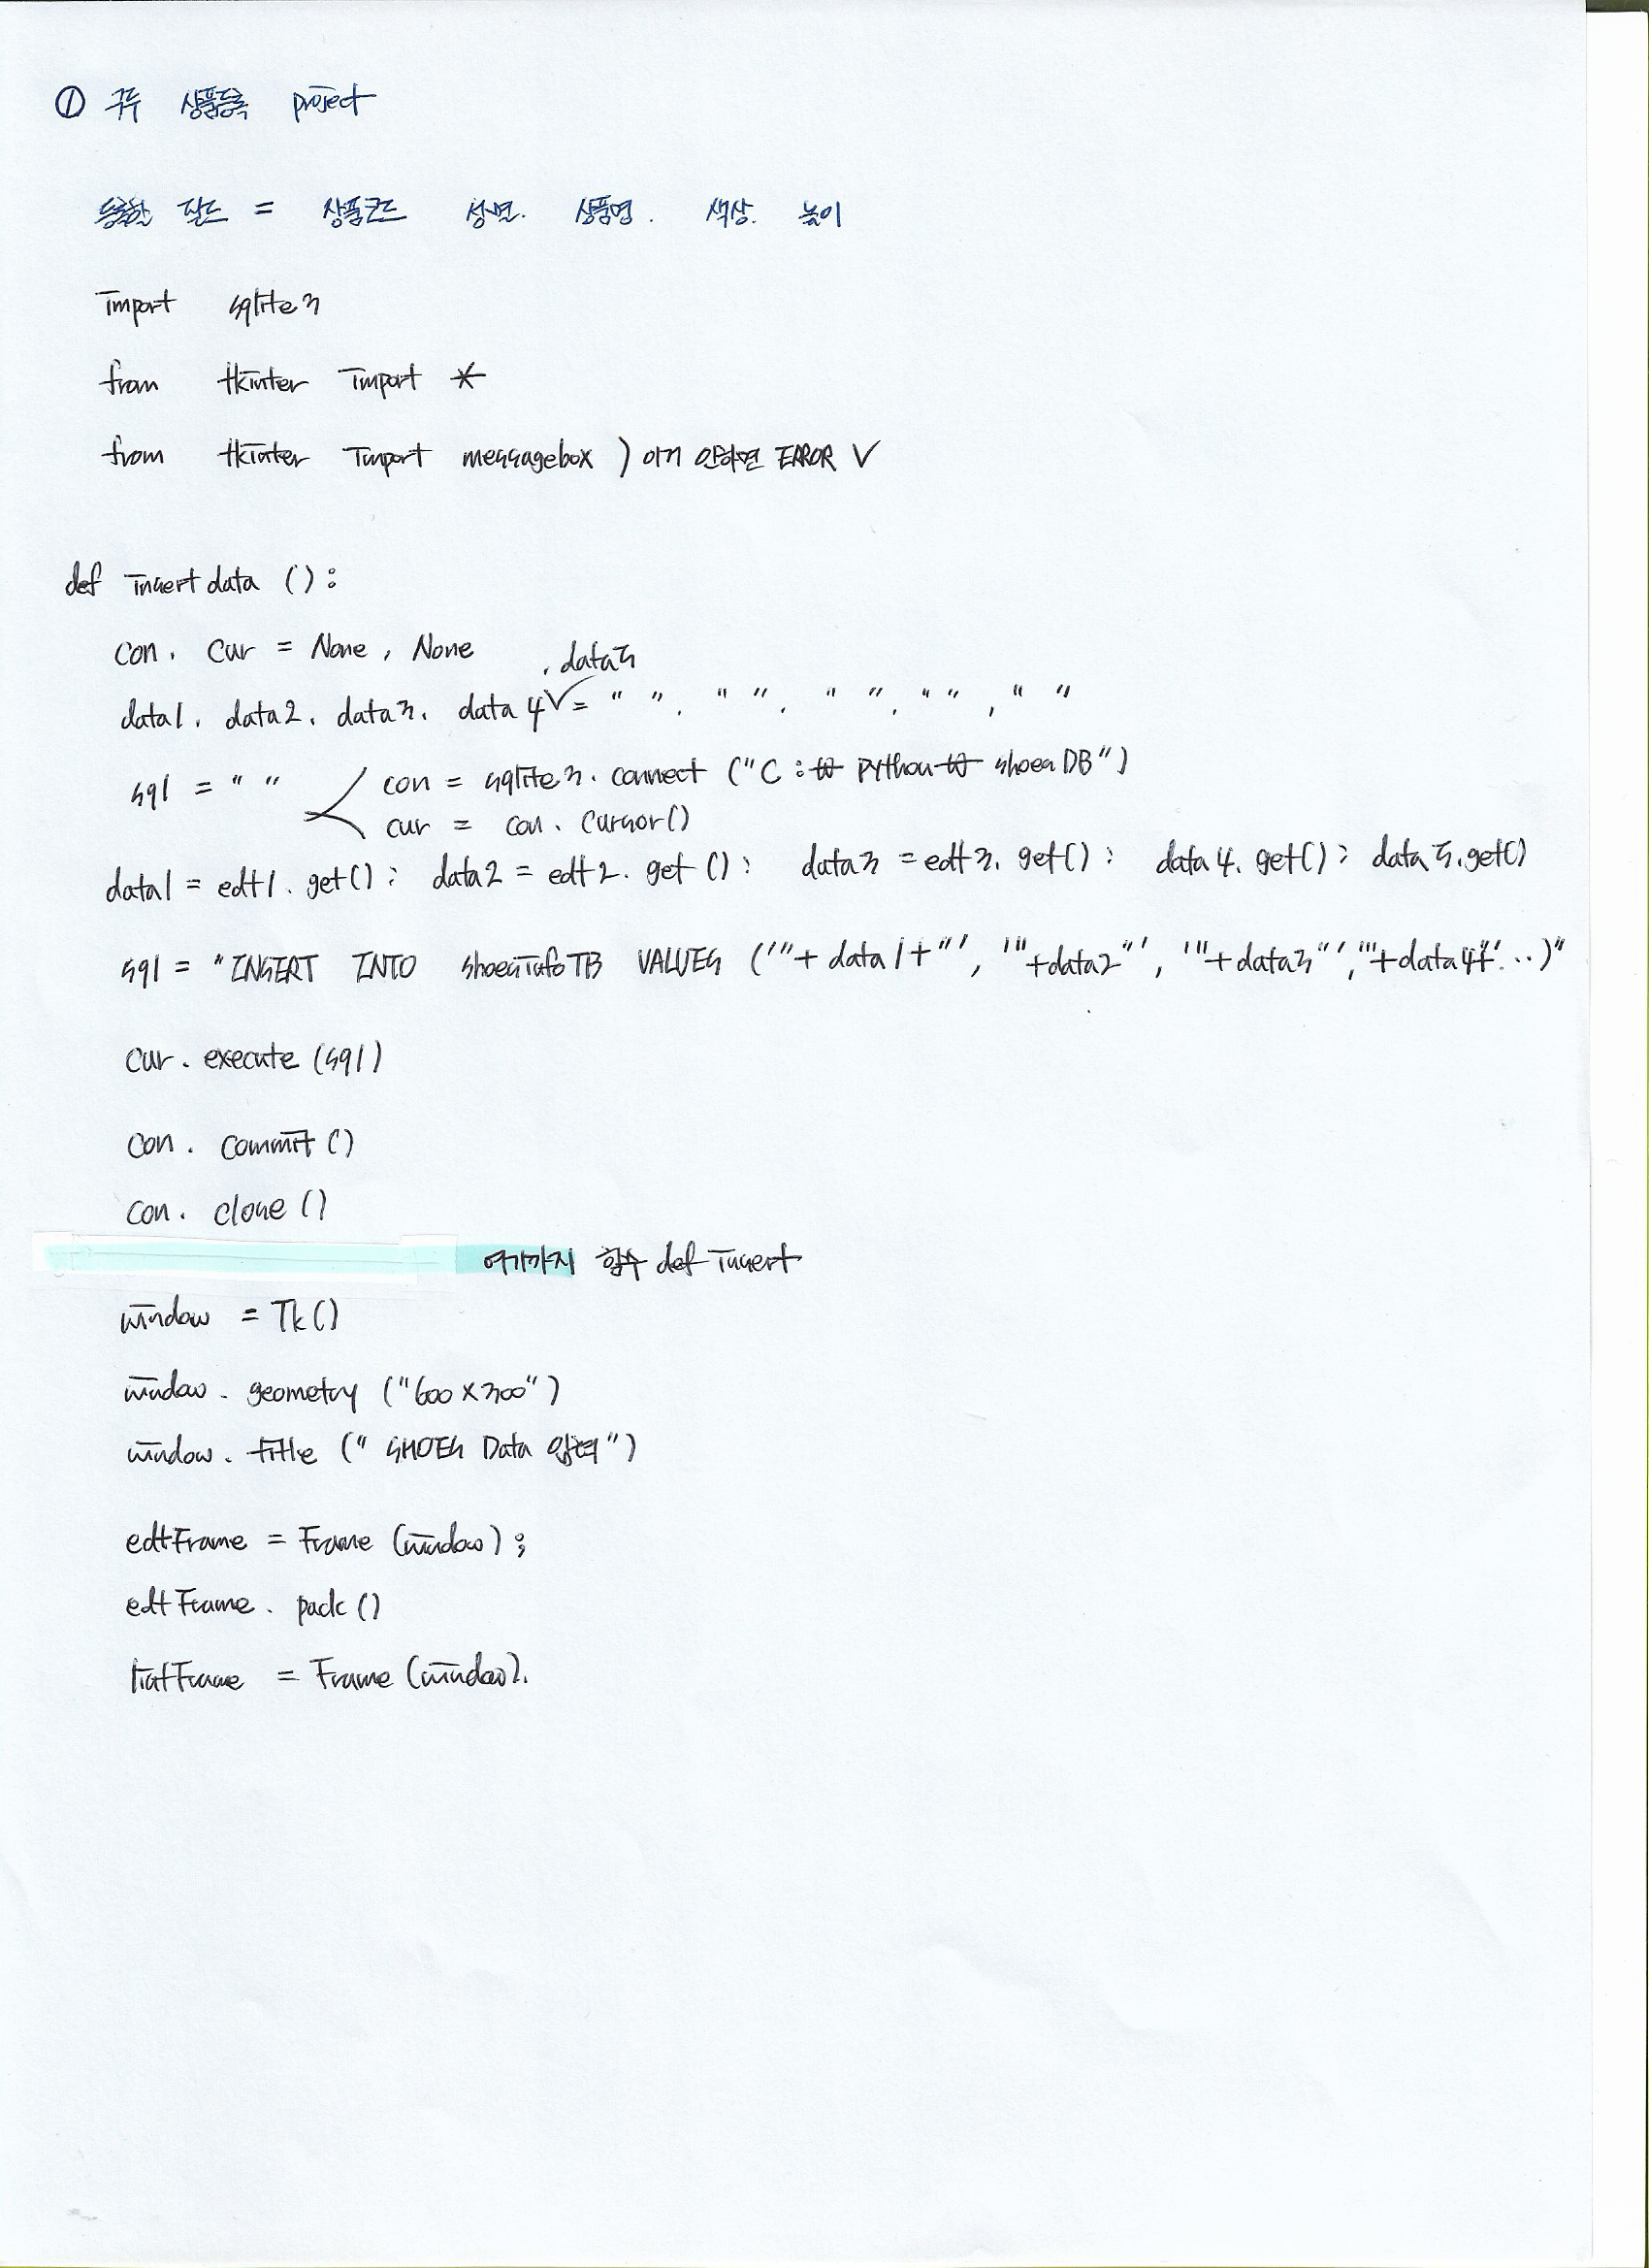 ① 구두 상품등록 project
등록할 필드 = 상품코드 성별. 상품명. 색상. 높이
import sqlite3
from tkinter import *
from tkinter import messagebox ) 이거 안하면 ERROR V
def insertdata ():
con, cur = None, None
, data5
data1, data2, data3, data4 V = " ", " ", " ", " ", " "
sql = " "
con = sqlite3.connect ("C:₩ python ₩ shoesDB")
cur = con. cursor()
data1 = edt1. get(); data2 = edt2. get (); data3 = edt3. get(); data4. get(); data5.get()
sql = "INSERT INTO shoesInfoTB VALUES ('"+ data1+"', '"+data2"', '"+data3"', '"+data4+"'...)"
cur. execute (sql)
con. commit ()
con. close ()
여기까지 함수 def insert
window = Tk()
window. geometry ("600x300")
window. title (" SHOES Data 입력")
edtFrame = Frame (window);
edtFrame. pack ()
listFrame = Frame (window).